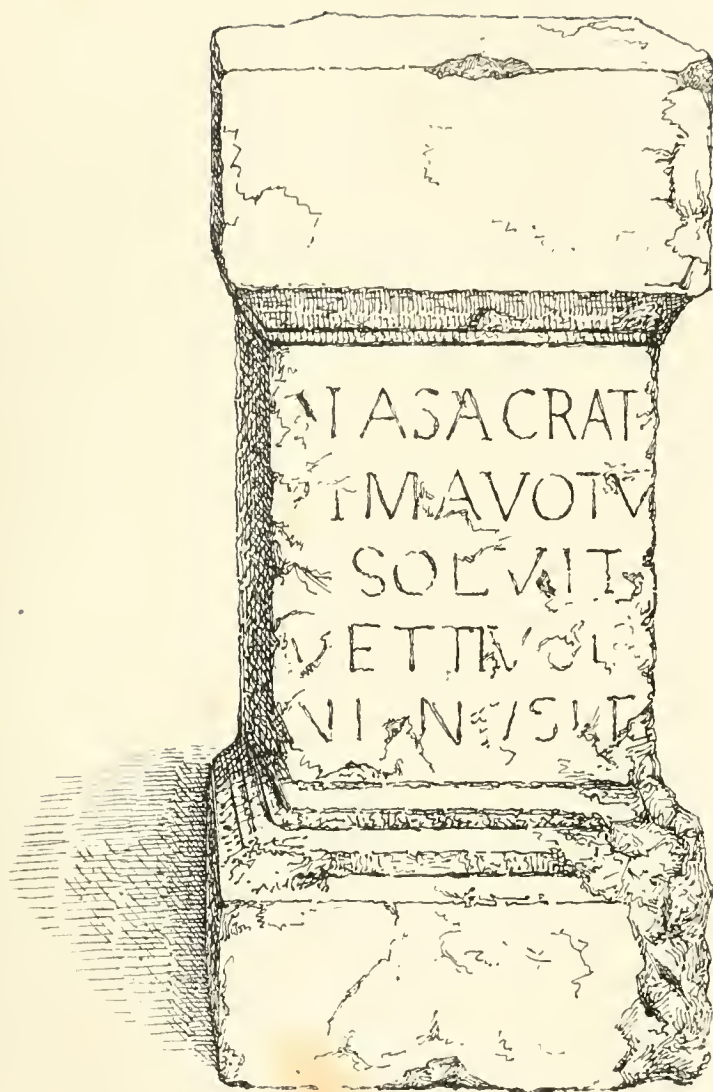 IASACRAT
IMAVOTV
SOLVIT
VETTIVOL
NINVSIT